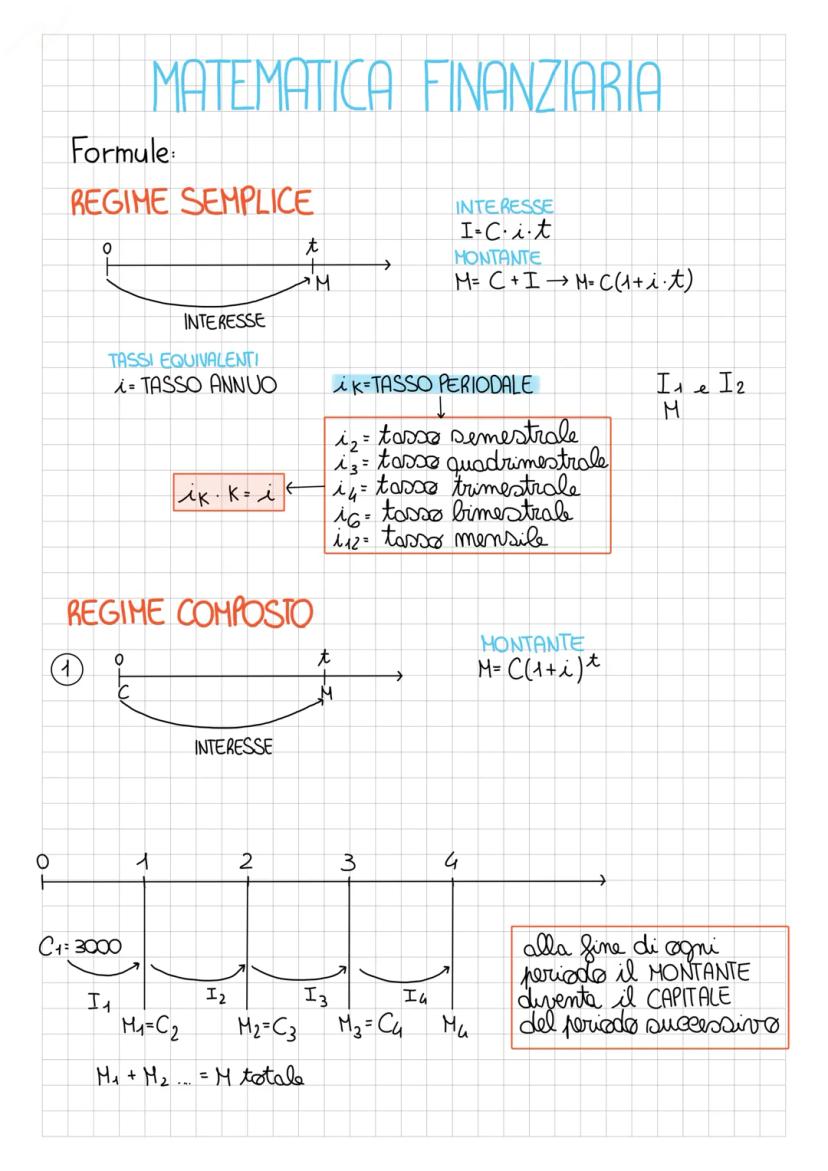 MATEMATICA FINANZIARIA
Formule:
REGIME SEMPLICE
0 t
M
INTERESSE
INTERESSE
I=C·i·t
MONTANTE
M= C+I → M=C(1+i·t)
TASSI EQUIVALENTI
i= TASSO ANNUO
iK=TASSO PERIODALE
i2= tasso semestrale
i3= tasso quadrimestrale
i4= tasso trimestrale
i6= tasso bimestrale
i12= tasso mensile
iK · K= i
I1 e I2
M
REGIME COMPOSTO
1
0 t
C M
INTERESSE
MONTANTE
M= C(1+i)^t
0 1 2 3 4
C1=3000
I1 I2 I3 I4
M1=C2 M2=C3 M3=C4 M4
M1 + M2 ... = M totale
alla fine di ogni
periodo il MONTANTE
diventa il CAPITALE
del periodo successivo